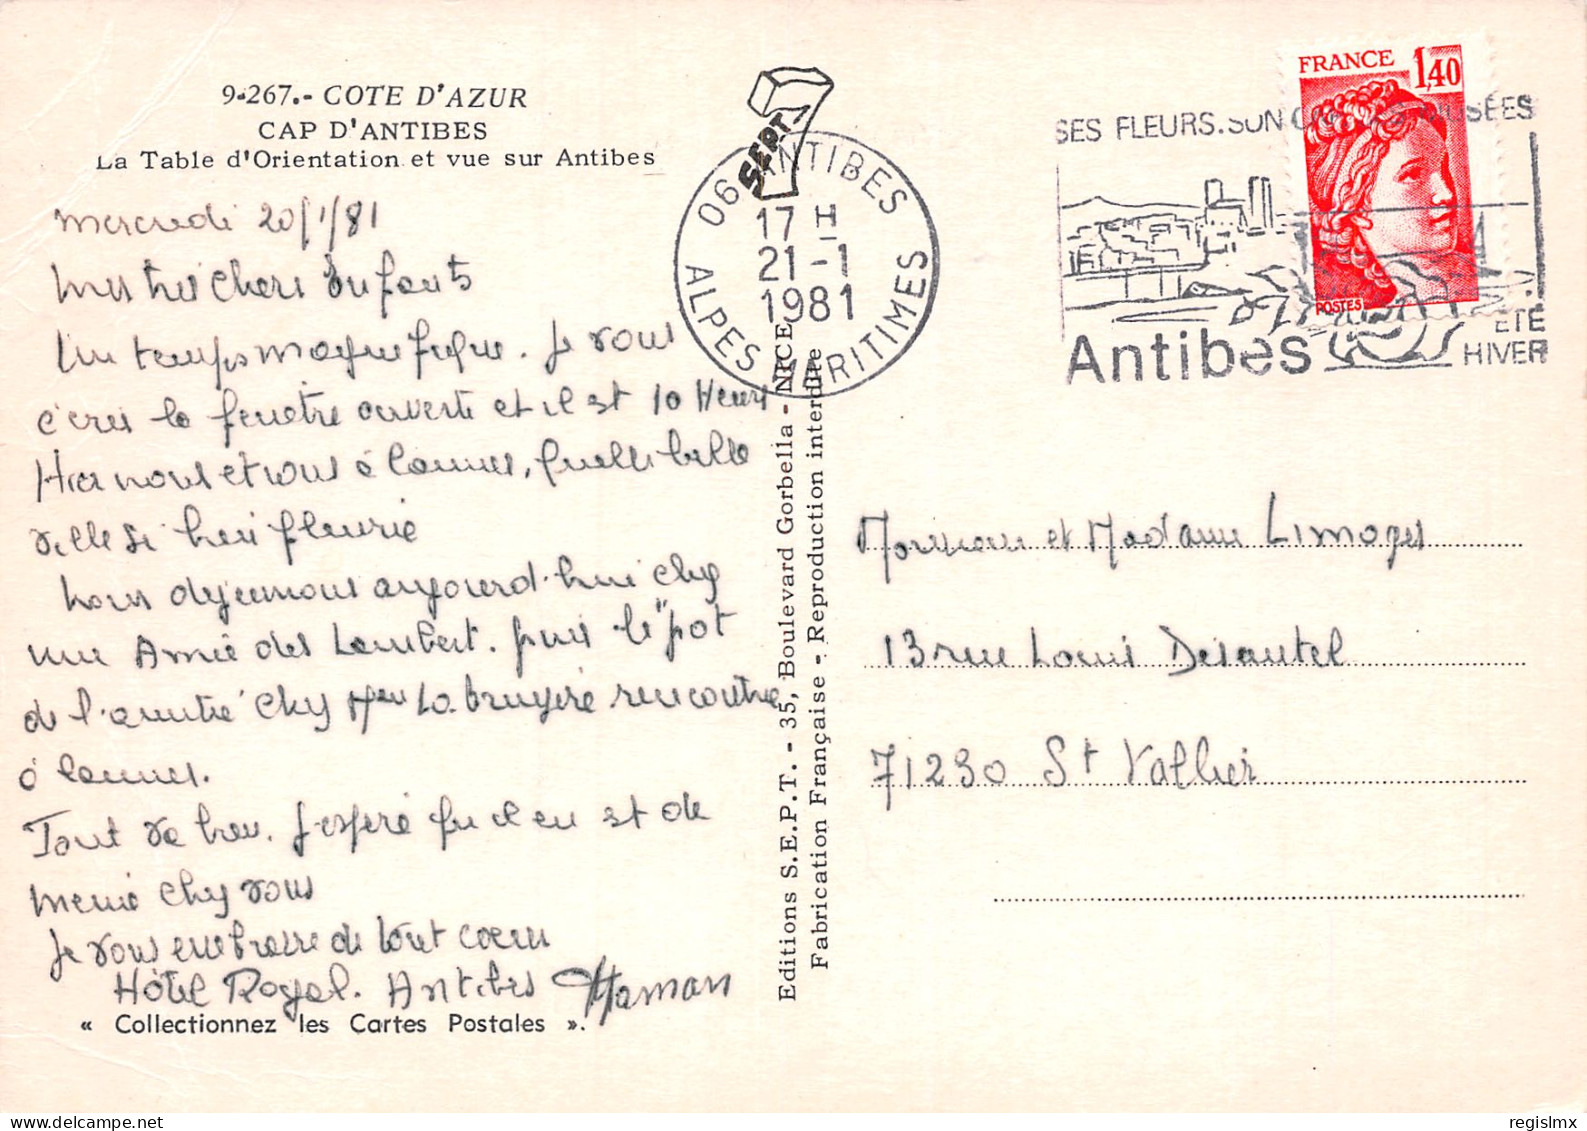 9-267.- COTE D'AZUR
CAP D'ANTIBES
La Table d'Orientation et vue sur Antibes
mercredi 20/1/81
Mes très chers Enfants
Un temps magnifique. Je vous
écris la fenêtre ouverte et il est 10 Heures
Hier nous étions à Cannes, quelle belle
ville si bien fleurie
Nous déjeunons aujourd'hui chez
une Amie des Lambert. puis le "pot
de l'amitié" chez Mme La bruyère rencontrée
à Cannes.
Tout va bien. J'espère qu'il en est de
même chez vous
Je vous embrasse de tout coeur
Hôtel Royal. Antibes Maman
« Collectionnez les Cartes Postales ».
SEPT
Editions S.E.P.T. - 35, Boulevard Gorbella - NICE
Fabrication Française - Reproduction interdite
06 ANTIBES
17 H
21-1
1981
ALPES MARITIMES
SES FLEURS. SON MUSÉES
Antibes
ÉTÉ
HIVER
FRANCE 1,40
POSTES
Monsieur et Madame Limoges
13 rue Louis Desautel
71230 St Vallier
regislmx